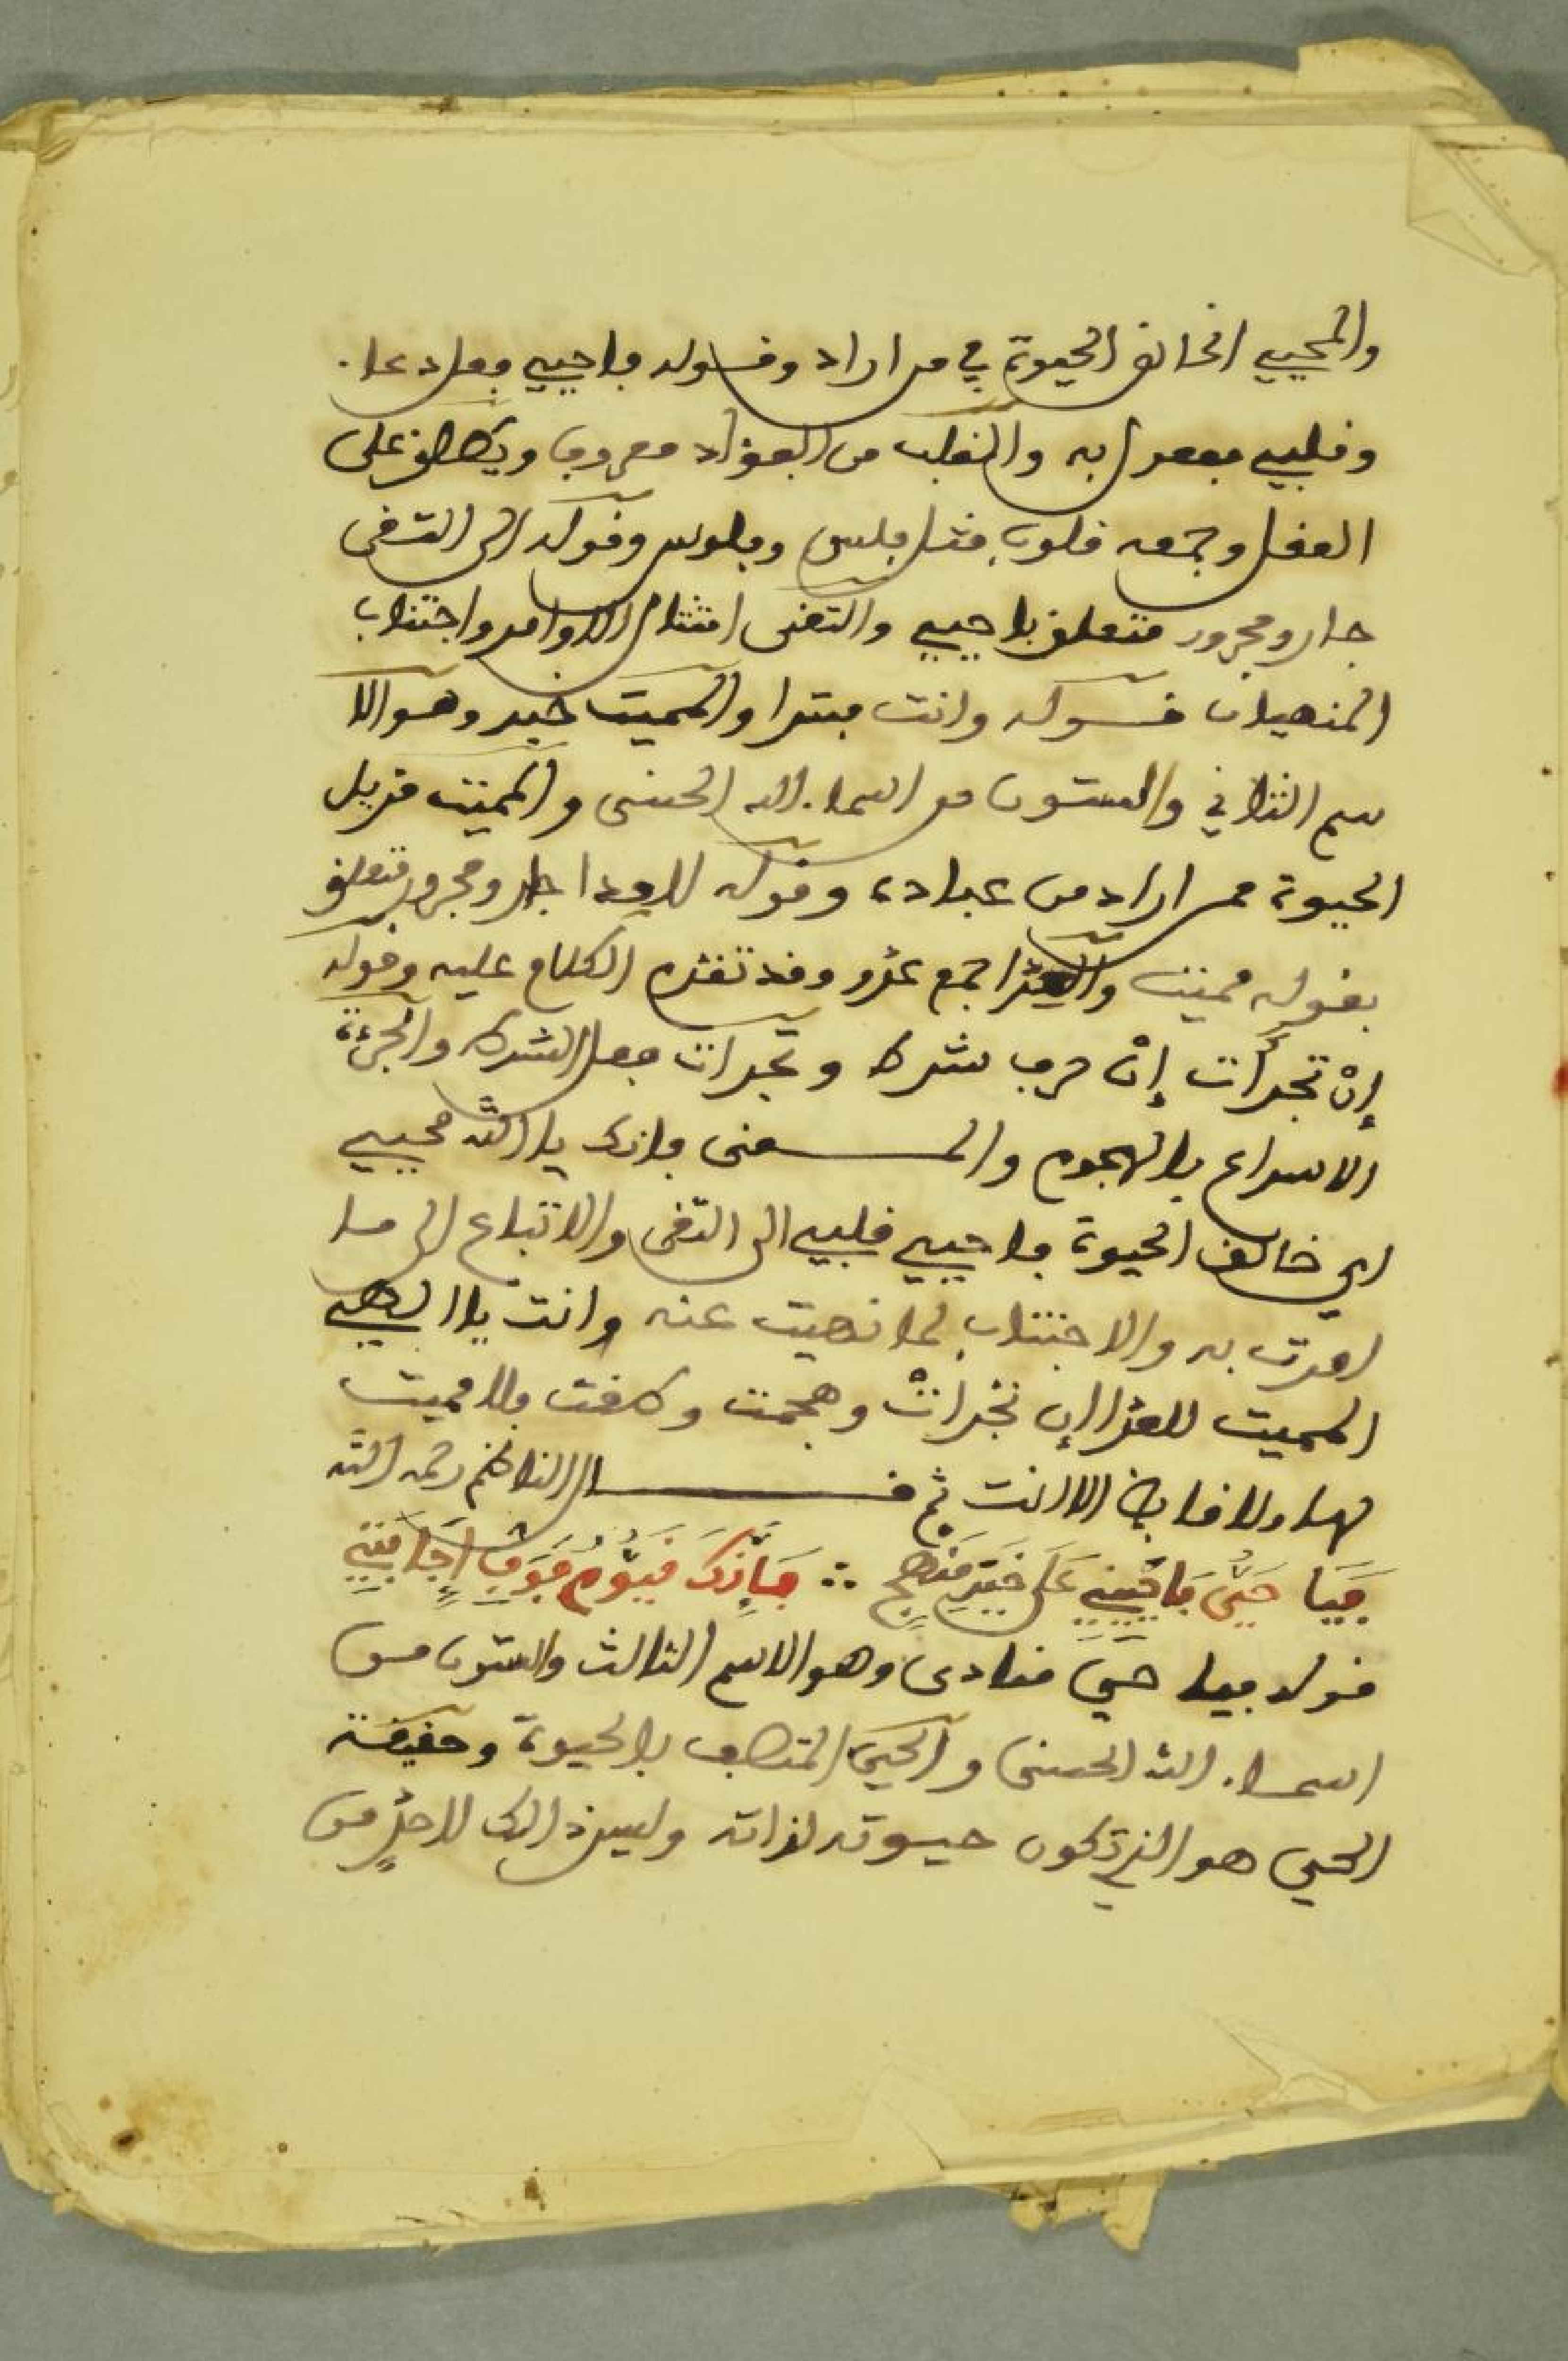 والمحيي الخالق الحيوة في من اراد وقوله فاحيي فعل دعاء
وقلبي مفعول به والقلب من الفؤاد معروف ويطلق على
العقل وجمعه قلوب مثل فلس وفلوس وقوله الى التقى
جار ومجرور متعلق باحيي والتقى امتثال الاوامر واجتناب
المنهيات قوله وانت مبتدا والمميت خبر وهو الا
سم الثاني والستون من اسماء الله الحسنى والمميت مزيل
الحيوة ممن اراد من عباده وقوله للاعدا جار ومجرور متعلق
بقوله مميت والعدا جمع عدو وقد تقدم الكلام عليه وقوله
إنْ تجرأت إنْ حرف شرط وتجرات فعل الشرط والجرءة
الاسراع بالهجوم والمعنى فانك يا الله محيي
اي خالق الحيوة فاحيي قلبي الى التقى والاتباع الى ما
امرت به والاجتناب لما نهيت عنه وانت يا الهي
المميت للعدا إن تجراتْ وهجمت وطغت فلا مميت
لها ولا قابض الا انت ثم قال الناظم رحمه الله
فَيَا حَيُّ فَاحْيِينِي عَلَى خَيْرِ مَنْهَجٍ ∴ فَإِنَّكَ قَيُّومُ
قوله فيا حي منادى وهو الاسم الثالث والستون من
اسماء الله الحسنى والحي المتصف بالحيوة وحقيقة
الحي هو الذي تكون حيوته لذاته وليس ذالك لاحدٍ من